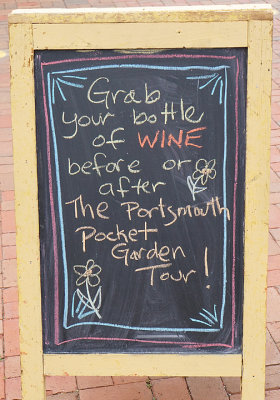 Grab
your bottle
of WINE
before or
after
The Portsmouth
Pocket
Garden
Tour!